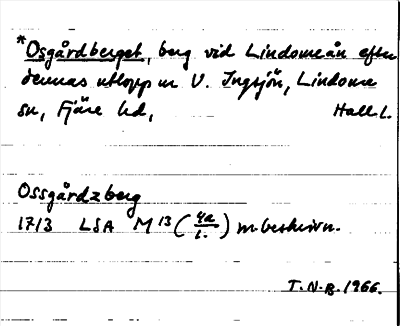 *Osgårdberget, berg vid Lindomeån efter
dennas utlopp ur V. Ingsjön, Lindome
sn, Fjäre hd, Hall. L.
Ossgårdzberg
1713 LSA M 13 (4a/1.) m. beskrivn.
T.N.B. 1966.